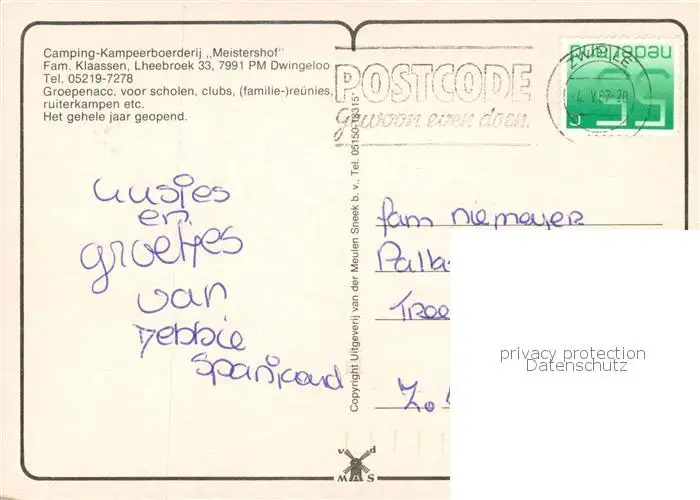 Camping-Kampeerboerderij „Meistershof"
Fam. Klaassen, Lheebroek 33, 7991 PM Dwingeloo
Tel. 05219-7278
Groepenacc. voor scholen, clubs, (familie-)reünies,
ruiterkampen etc.
Het gehele jaar geopend.
POSTCODE
Gewoon even doen.
ZWOLLE
nederland
55
Copyright Uitgeverij van der Meulen Sneek b.v., Tel. 05150-18315*
kusjes
en
groetjes
van
Debbie
fam niemeyer
Palla
Z.
privacy protection
Datenschutz
v d
MAS